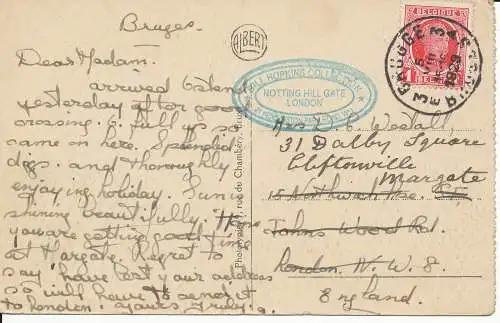 Bruges
Dear Madam.
arrived Ostend
yesterday after good
crossing. O. full up so
came on here. Splendid
digs. and thoroughly
enjoying holiday. Sun is
shining beautifully. Hope
you are getting good time
at Margate. Regret to
say have lost your address
so will have to send it
to London. Yours truly
ALBERT
HOPKINS COLLECTION
NOTTING HILL GATE
LONDON
BELGIQUE
BELGIE
1
ZEEBRUGGE
Westall,
31 Dalby Square
Cliftonville
Margate
15 Northwick Ter. St,
Johns Wood Rd.
London N.W. 8.
England.
rue de Chambéry,